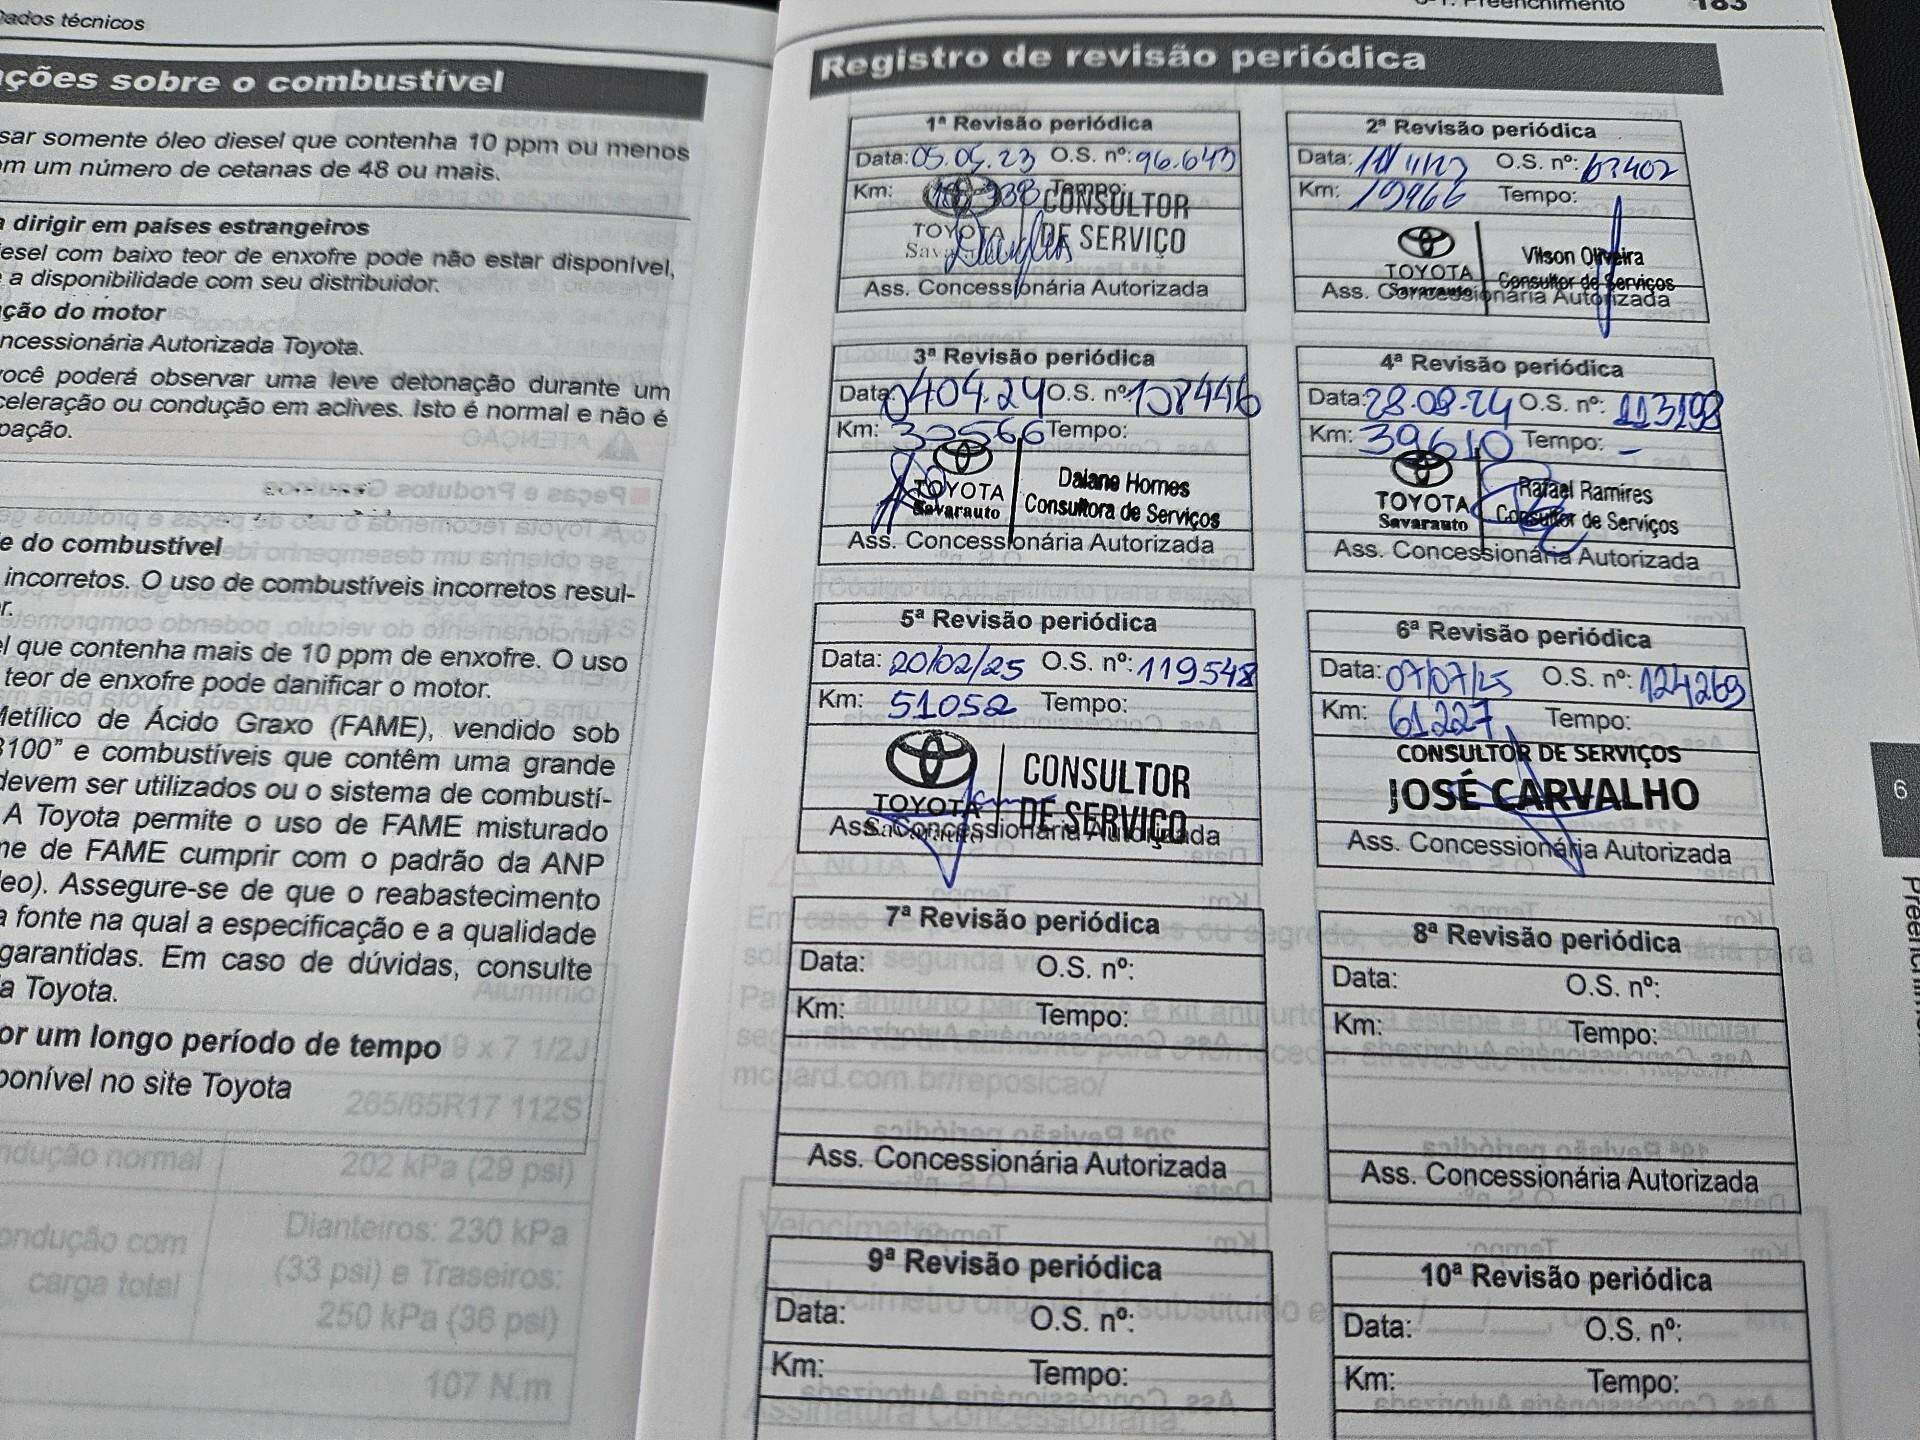 Dados técnicos
ções sobre o combustível
sar somente óleo diesel que contenha 10 ppm ou menos
om um número de cetanas de 48 ou mais.
a dirigir em países estrangeiros
iesel com baixo teor de enxofre pode não estar disponível,
e a disponibilidade com seu distribuidor.
ção do motor
ncessionária Autorizada Toyota.
você poderá observar uma leve detonação durante um
celeração ou condução em aclives. Isto é normal e não é
pação.
e do combustível
incorretos. O uso de combustíveis incorretos resul-
r.
el que contenha mais de 10 ppm de enxofre. O uso
teor de enxofre pode danificar o motor.
Metílico de Ácido Graxo (FAME), vendido sob
B100” e combustíveis que contêm uma grande
devem ser utilizados ou o sistema de combustí-
A Toyota permite o uso de FAME misturado
me de FAME cumprir com o padrão da ANP
leo). Assegure-se de que o reabastecimento
a fonte na qual a especificação e a qualidade
garantidas. Em caso de dúvidas, consulte
a Toyota.
or um longo período de tempo
ponível no site Toyota
19 x 7 1/2J
265/65R17 112S
ndução normal
202 kPa (29 psi)
ondução com
carga total
Dianteiros: 230 kPa
(33 psi) e Traseiros:
250 kPa (36 psi)
107 N.m
6-1. Preenchimento 183
Registro de revisão periódica
1ª Revisão periódica
Data: 05.05.23 O.S. nº: 96.643
Km: Tempo:
TOYOTA
CONSULTOR
DE SERVIÇO
Ass. Concessionária Autorizada
2ª Revisão periódica
Data: O.S. nº:
Km: 19966 Tempo:
TOYOTA
Savarauto
Vilson Oliveira
Consultor de Serviços
Ass. Concessionária Autorizada
3ª Revisão periódica
Data: 0404.24 O.S. nº: 108446
Km: Tempo:
TOYOTA
Savarauto
Daiane Homes
Consultora de Serviços
Ass. Concessionária Autorizada
4ª Revisão periódica
Data: 28.08.24 O.S. nº: 113198
Km: 39610 Tempo: -
TOYOTA
Savarauto
Rafael Ramires
Consultor de Serviços
Ass. Concessionária Autorizada
5ª Revisão periódica
Data: 20/02/25 O.S. nº: 119548
Km: 51052 Tempo:
TOYOTA
CONSULTOR
DE SERVIÇO
Ass. Concessionária Autorizada
6ª Revisão periódica
Data: 07/07/25 O.S. nº: 124269
Km: 61227 Tempo:
CONSULTOR DE SERVIÇOS
JOSÉ CARVALHO
Ass. Concessionária Autorizada
7ª Revisão periódica
Data: O.S. nº:
Km: Tempo:
Ass. Concessionária Autorizada
8ª Revisão periódica
Data: O.S. nº:
Km: Tempo:
Ass. Concessionária Autorizada
9ª Revisão periódica
Data: O.S. nº:
Km: Tempo:
10ª Revisão periódica
Data: O.S. nº:
Km: Tempo:
6